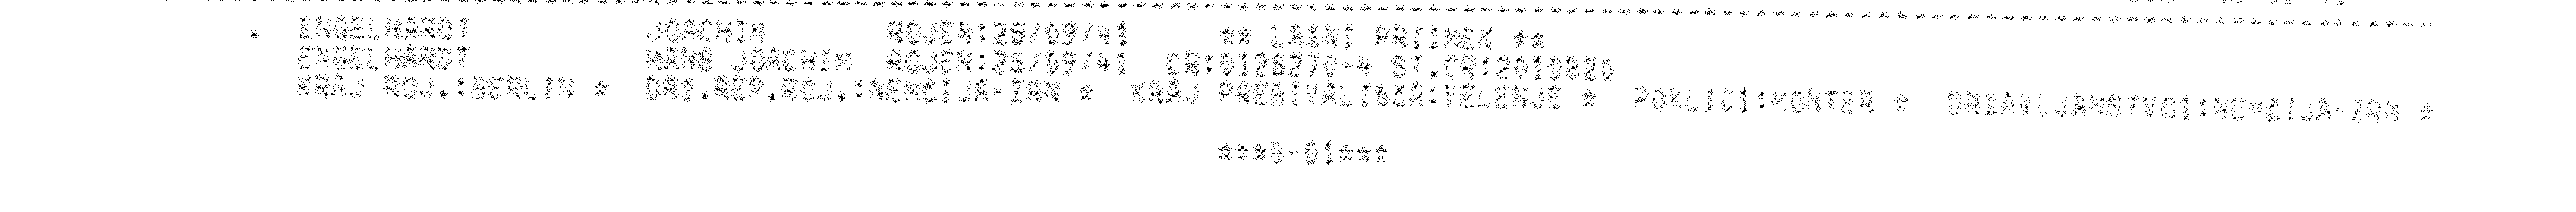 . ENGELHARDT JOACHIM ROJEN:25/09/41 ** LAZNI PRIIMEK **
ENGELHARDT HANS JOACHIM ROJEN:25/09/41 CR:0125270-4 ST.CR:2010820
KRAJ ROJ.:BERLIN * DRZ.REP.ROJ.:NEMCIJA-ZRN * KRAJ PREBIVALISCA:VELENJE * POKLIC1:MONTER * DRZAVLJANSTVO1:NEMCIJA-ZRN *
***B-01***